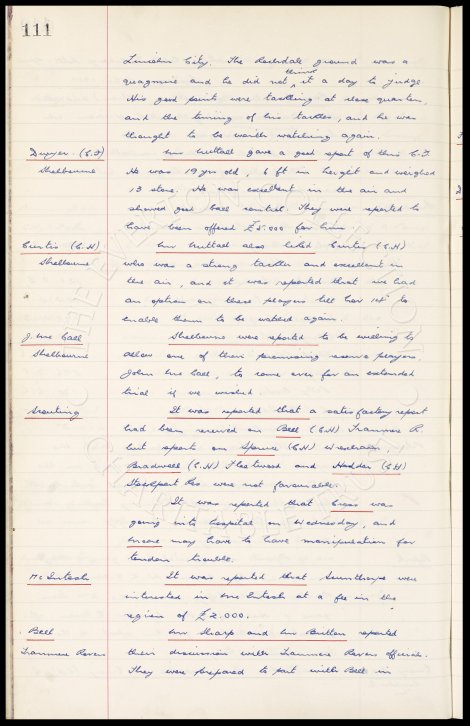 111
Lincoln City. The Rochdale ground was a
quagmire and he did not think it a day to judge
His good points were tackling at close quarters,
and the timing of his tackles, and he was
thought to be worth watching again.
Dwyer. (C.F) Mr Nuttall gave a good report of this C.F.
Shelbourne He was 19 yrs old, 6 ft in height and weighed
13 stone. He was excellent in the air and
showed good ball control. They were reported to
have been offered £5.000 for him.
Curtis (C.H) Mr Nuttall also liked Curtis (C.H)
Shelbourne who was a strong tackler and excellent in
the air, and it was reported that we had
an option on these players till Nov 14th to
enable them to be watched again.
J. Mc Call Shelbourne were reported to be willing to
Shelbourne allow one of their promising reserve players
John Mc Call, to come over for an extended
trial if we wished.
Scouting It was reported that a satisfactory report
had been received on Bell (C.H) Tranmere R.
but reports on Spruce (C.H) Wrexham,
Bradwell (C.H) Fleetwood and Hodder (C.H)
Stockport Res. were not favourable.
It was reported that Cross was
going into hospital on Wednesday, and
may have to have manipulation for
tendon trouble.
McIntosh It was reported that Scunthorpe were
interested in McIntosh at a fee in the
region of £2.000.
Bell Mr Sharp and Mr Britton reported
Tranmere Rovers their discussion with Tranmere Rovers officials.
They were prepared to part with Bell in
THE EVERTON